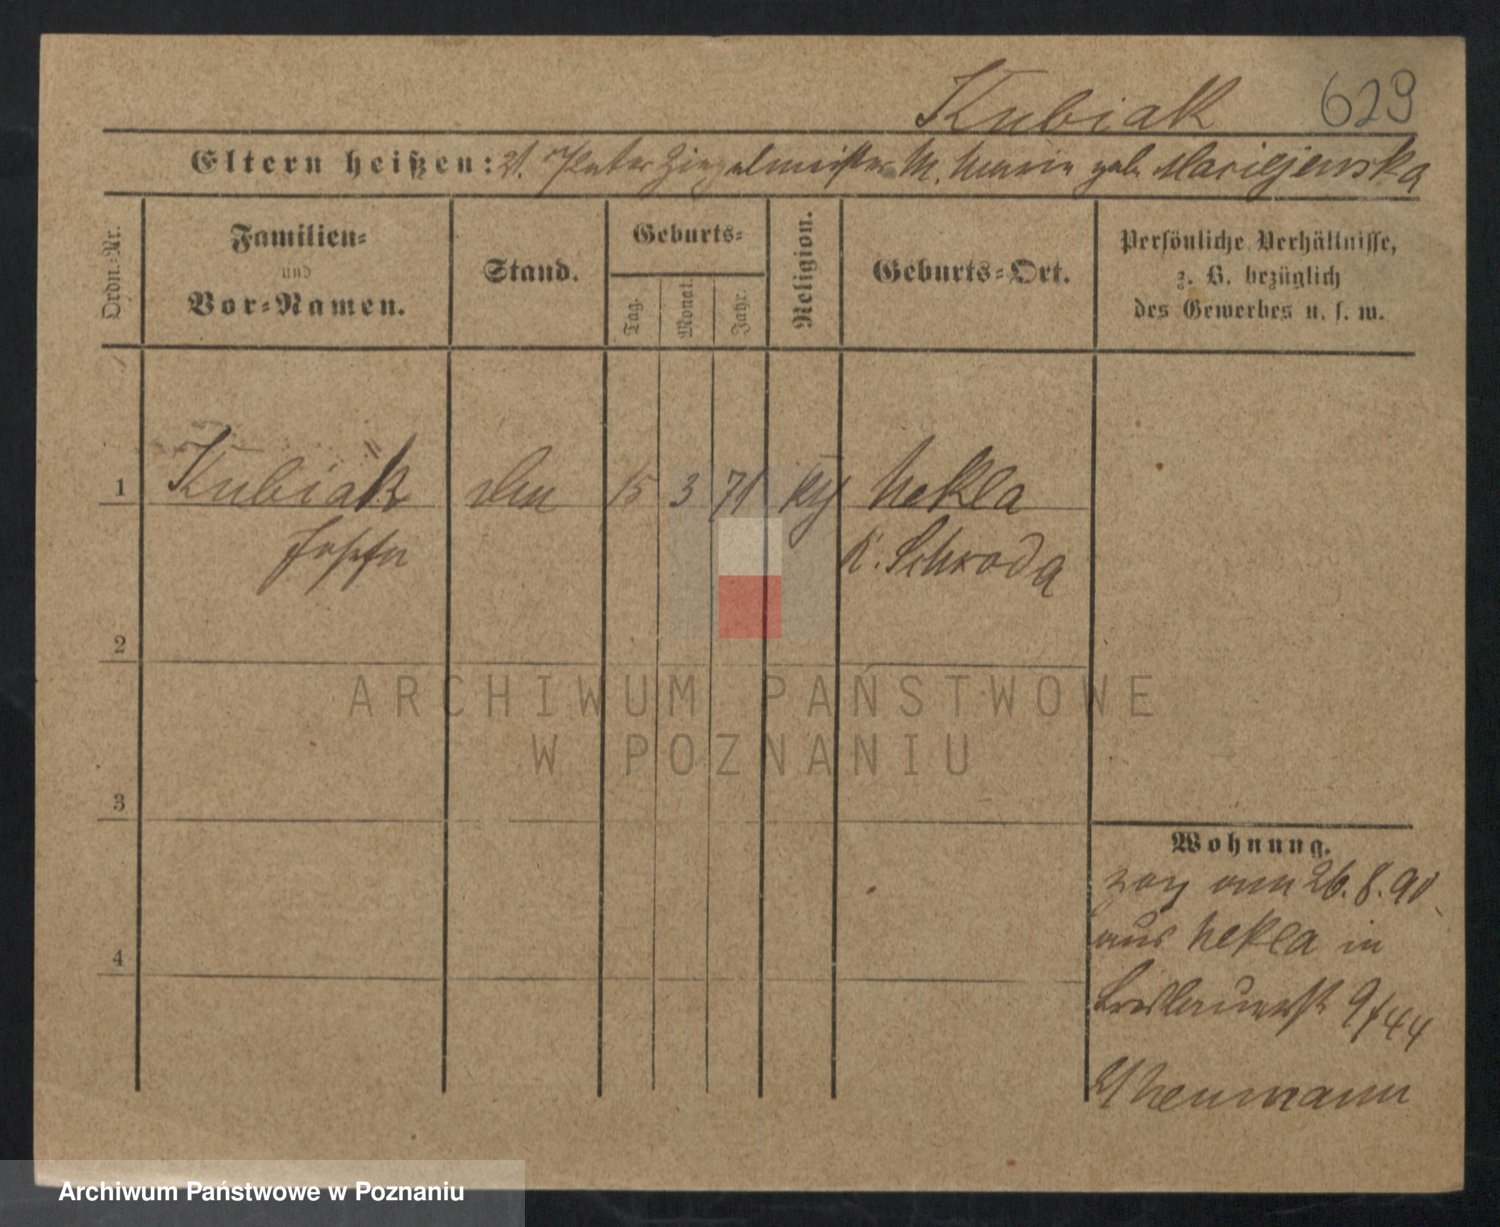 Kubiak 629
Eltern heißen: V. Peter Ziegelmeister M. Marie geb. Maciejewska
Ordn.-Nr.
Familien-
und
Vor-Namen.
Stand.
Geburts-
Tag.
Monat.
Jahr.
Religion.
Geburts-Ort.
Persönliche Verhältnisse,
z. B. bezüglich
des Gewerbes u. s. w.
1 Kubiak 15 3 71 Nekla
K. Schroda
2
3
4
Wohnung.
zog am 26.8.90
aus Nekla in
Breslauerst 9
ARCHIWUM PAŃSTWOWE
W POZNANIU
Archiwum Państwowe w Poznaniu